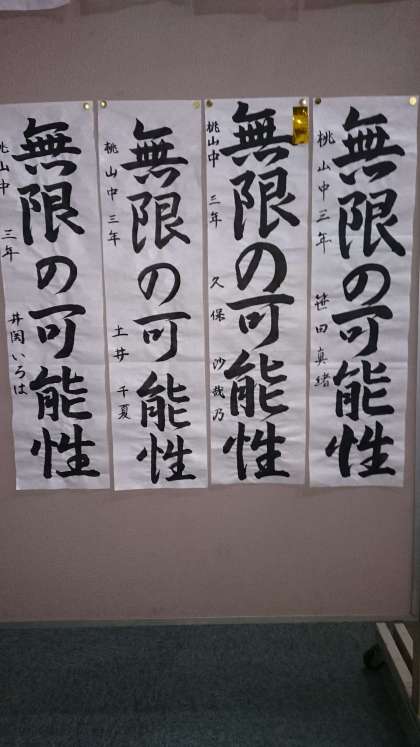 無限の可能性
桃山中 三年 笹田真緒
無限の可能性
桃山中 三年 久保沙哉乃
無限の可能性
桃山中 三年 土井千夏
無限の可能性
桃山中 三年 井関いろは